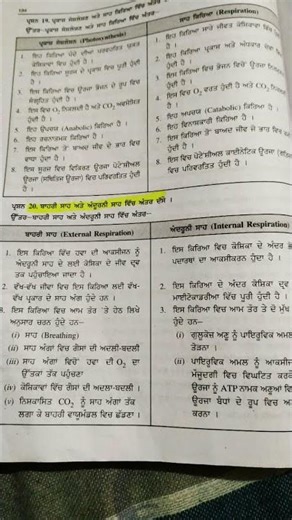 ਪ੍ਰਸ਼ਨ 19. ਪ੍ਰਕਾਸ਼ ਸੰਸਲੇਸ਼ਣ ਅਤੇ ਸਾਹ ਕਿਰਿਆ ਵਿੱਚ ਅੰਤਰ
ਉੱਤਰ—ਪ੍ਰਕਾਸ਼ ਸੰਸਲੇਸ਼ਣ ਅਤੇ ਸਾਹ ਕਿਰਿਆ ਵਿੱਚ ਅੰਤਰ—
ਪ੍ਰਕਾਸ਼ ਸੰਸਲੇਸ਼ਣ (Photosynthesis)
1. ਇਹ ਕਿਰਿਆ ਪੌਦੇ ਦੀਆਂ ਕਲੋਰੋਫਿਲ ਯੁਕਤ
ਕੋਸ਼ਿਕਾਵਾਂ ਵਿਚ ਹੁੰਦੀ ਹੈ ।
2. ਇਹ ਕਿਰਿਆ ਸੂਰਜ ਦੇ ਪ੍ਰਕਾਸ਼ ਵਿਚ ਪੂਰੀ ਹੁੰਦੀ
ਹੈ ।
3. ਇਸ ਕਿਰਿਆ ਵਿਚ ਊਰਜਾ ਭੋਜਨ ਦੇ ਰੂਪ ਵਿਚ
ਸੰਗ੍ਰਹਿਤ ਹੁੰਦੀ ਹੈ ।
4. ਇਸ ਵਿਚ O₂ ਨਿਕਲਦੀ ਅਤੇ CO₂ ਅਵਸ਼ੋਸ਼ਿਤ
ਹੁੰਦੀ ਹੈ ।
5. ਇਹ ਉਪਚਯ (Anabolic) ਕਿਰਿਆ ਹੈ ।
6. ਇਹ ਰਚਨਾਤਮਕ ਕਿਰਿਆ ਹੈ ।
7. ਇਸ ਕਿਰਿਆ ਤੋਂ ਬਾਅਦ ਜੀਵ ਦੇ ਭਾਰ ਵਿਚ
ਵਾਧਾ ਹੁੰਦਾ ਹੈ ।
8. ਇਸ ਸੂਰਜ ਵਿਚ ਵਿਕਿਰਣ ਊਰਜਾ ਪੋਟੈਂਸ਼ੀਅਲ
ਊਰਜਾ (ਸਥਿਤਿਜ ਊਰਜਾ) ਵਿਚ ਪਰਿਵਰਤਿਤ ਹੁੰਦੀ
ਹੈ ।
ਸਾਹ ਕਿਰਿਆ (Respiration)
1. ਇਹ ਕਿਰਿਆ ਸਾਰੇ ਜੀਵਤ ਕੋਸ਼ਿਕਾਵਾਂ ਵਿਚ
2. ਇਹ ਕਿਰਿਆ ਪ੍ਰਕਾਸ਼ ਅਤੇ ਅੰਧਕਾਰ
ਹੁੰਦੀ ਹੈ ।
3. ਇਸ ਕਿਰਿਆ ਵਿਚ ਭੋਜਨ ਵਿਚੋਂ ਊਰਜਾ
ਹੁੰਦੀ ਹੈ ।
4. ਇਸ ਵਿਚ O₂ ਵਰਤੀ ਹੁੰਦੀ ਹੈ ਅਤੇ CO₂
ਹੈ ।
5. ਇਹ ਅਪਚਯ (Catabolic) ਕਿਰਿਆ ਹੈ ।
6. ਇਹ ਵਿਨਾਸ਼ਕਾਰੀ ਕਿਰਿਆ ਹੈ ।
7. ਇਸ ਕਿਰਿਆ ਤੋਂ ਬਾਅਦ ਜੀਵ ਦੇ ਭਾਰ ਵਿਚ
ਹੁੰਦੀ ਹੈ ।
8. ਇਸ ਵਿਚ ਪੋਟੈਂਸ਼ੀਅਲ ਕਾਈਨੈਟਿਕ ਊਰਜਾ
ਵਿਚ ਪਰਿਵਰਤਿਤ ਹੁੰਦੀ ਹੈ ।
ਪ੍ਰਸ਼ਨ 20. ਬਾਹਰੀ ਸਾਹ ਅਤੇ ਅੰਦਰੂਨੀ ਸਾਹ ਵਿੱਚ ਅੰਤਰ ਦੱਸੋ ।
ਉੱਤਰ—ਬਾਹਰੀ ਸਾਹ ਅਤੇ ਅੰਦਰੂਨੀ ਸਾਹ ਵਿੱਚ ਅੰਤਰ—
ਬਾਹਰੀ ਸਾਹ (External Respiration)
1. ਇਸ ਕਿਰਿਆ ਵਿੱਚ ਹਵਾ ਦੀ ਆਕਸੀਜਨ ਨੂੰ
ਅੰਦਰੂਨੀ ਸਾਹ ਦੇ ਲਈ ਕੋਸ਼ਿਕਾ ਦੇ ਜੀਵ ਦ੍ਰਵ
ਤਕ ਪਹੁੰਚਾਇਆ ਜਾਂਦਾ ਹੈ ।
2. ਵੱਖ-ਵੱਖ ਜੀਵਾਂ ਵਿਚ ਇਸ ਕਿਰਿਆ ਲਈ ਵੱਖ-
ਵੱਖ ਪ੍ਰਕਾਰ ਦੇ ਸਾਹ ਅੰਗ ਹੁੰਦੇ ਹਨ ।
3. ਇਸ ਕਿਰਿਆ ਵਿਚ ਆਮ ਤੌਰ 'ਤੇ ਹੇਠ ਲਿਖੇ
ਅਨੁਸਾਰ ਚਰਨ ਹੁੰਦੇ ਹਨ—
(i) ਸਾਹ (Breathing)
(ii) ਸਾਹ ਅੰਗਾਂ ਵਿਚ ਗੈਸਾਂ ਦੀ ਅਦਲੀ-ਬਦਲੀ
(iii) ਸਾਹ ਅੰਗਾਂ ਵਿਚੋਂ ਹਵਾ ਦੀ O₂ ਦਾ
ਉੱਤਕਾਂ ਤੱਕ ਪਹੁੰਚਣਾ
(iv) ਕੋਸ਼ਿਕਾਵਾਂ ਵਿੱਚ ਗੈਸਾਂ ਦੀ ਅਦਲਾ-ਬਦਲੀ ।
(v) ਨਿਸ਼ਕਾਸਿਤ CO₂ ਨੂੰ ਸਾਹ ਅੰਗਾਂ ਤੱਕ
ਲਗਾ ਕੇ ਬਾਹਰੀ ਵਾਯੂਮੰਡਲ ਵਿਚ ਛੱਡਣਾ ।
ਅੰਦਰੂਨੀ ਸਾਹ (Internal Respiration)
1. ਇਸ ਕਿਰਿਆ ਵਿਚ ਕੋਸ਼ਿਕਾ ਦੇ ਅੰਦਰ
ਪਦਾਰਥਾਂ ਦਾ ਆਕਸੀਕਰਨ ਹੁੰਦਾ ਹੈ ।
2. ਇਸ ਕਿਰਿਆ ਦੇ ਅੰਦਰ ਕੋਸ਼ਿਕਾ ਦ੍ਰਵ
ਮਾਈਟੋਕਾਂਡਰੀਆ ਵਿੱਚ ਪੂਰੀ ਹੁੰਦੀ ਹੈ ।
3. ਇਸ ਕਿਰਿਆ ਵਿਚ ਆਮ ਤੌਰ ਤੇ ਦੋ ਮੁੱਖ
ਹੁੰਦੇ ਹਨ—
(i) ਗਲੂਕੋਜ਼ ਅਣੂ ਨੂੰ ਪਾਇਰੂਵਿਕ ਅਮਲ
ਤੋੜਨਾ ।
(ii) ਪਾਇਰੂਵਿਕ ਅਮਲ ਨੂੰ ਆਕਸੀਜਨ
ਮੌਜੂਦਗੀ ਵਿਚ ਵਿਘਟਿਤ ਕਰਕੇ
ਊਰਜਾ ਨੂੰ ATP ਨਾਮਕ ਅਣੂਆਂ ਵਿਚ
ਊਰਜਾ ਬੰਧਾਂ ਦੇ ਰੂਪ ਵਿਚ
ਕਰਨਾ ।